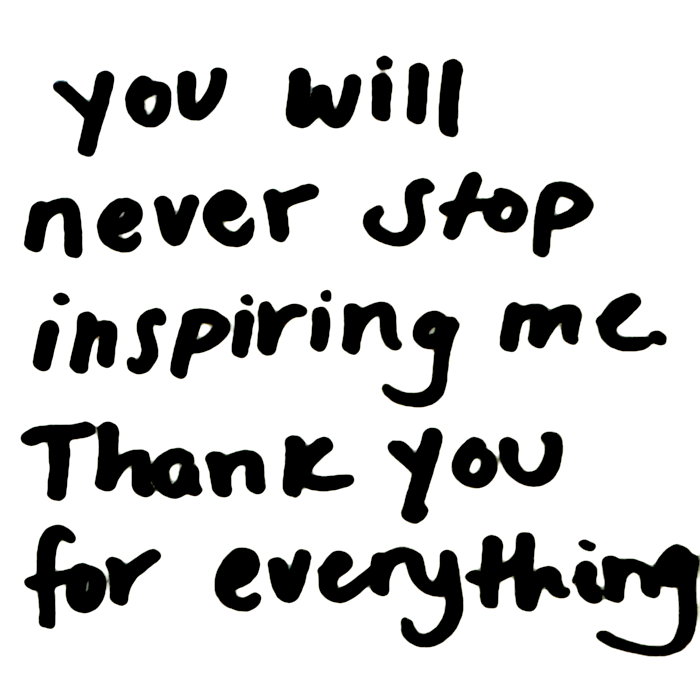 you will
never stop
inspiring me
Thank you
for everything